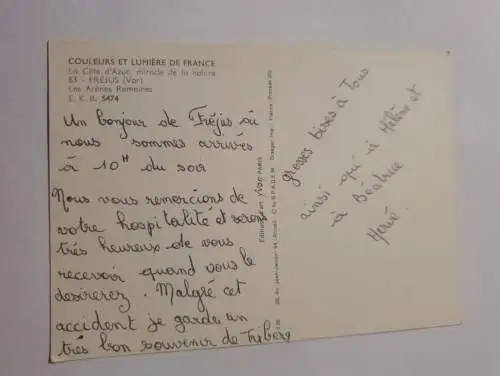 COULEURS ET LUMIÈRE DE FRANCE
La Côte d'Azur, miracle de la nature
83 - FRÉJUS (Var)
Les Arènes Romaines
E. K. B. 5474
Un bonjour de Fréjus où
nous sommes arrivés
à 10H du soir
Nous vous remercions de
votre hospitalité et serons
très heureux de vous
recevoir quand vous le
desirerez. Malgré cet
accident je garde un
très bon souvenir de Triberg
Editions d'art YVON PARIS
grosses bises à Tous
ainsi qu'à Hélène et
à Béatrice
Hervé.